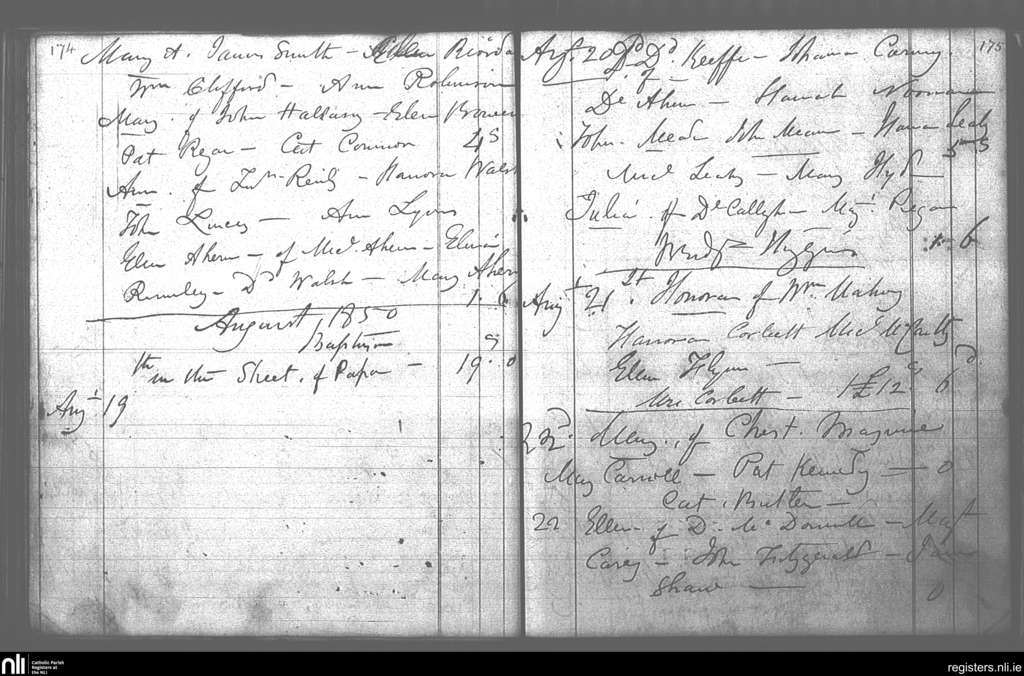 174
Mary A. James Smith - Ellen Riorda
Wm Clifford - Ann Robinson
Mary of John Hallasy - Ellen Bowen
Pat Regan - Cat Connor 4 S
Ann of Reily - Hanora Walsh
John Lucey - Ann Lyons
Ellen Ahern - of Micl Ahern -
- Walsh - Mary Ahern
1. 6
August, 1850
Baptism
in the Street of Papa - 19. 0
Augt 19
175
Aug. 20 Keeffe - Johana Carney
of
Ds Ahern - Hanah Noonan
John Meade John Meane - Hana Leahy
5 S
Micl Leahy - Mary Hyde
Julia of Ds Callaghan - Mgt Regan
Bridgt Higgins 6
Augt 21st Honoran of Wm Mahony
Hanoran Corbett Micl
Ellen Flynn -
Mre Corbett - 1£ 12s 6d
22d. Mary, of Christ. Maguire
May Carroll - Pat Kennedy - 0
Cat, Butler -
22 Ellen of D. McDonnell - Magt
Carey - John Fitzgerald - Jam
Shaw - 0
nli Catholic Parish
Registers at
the NLI
registers.nli.ie